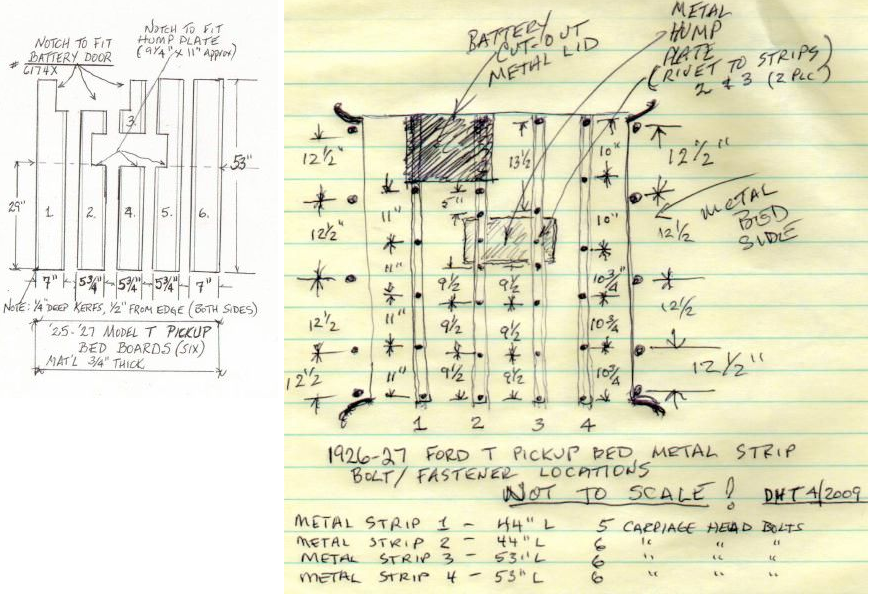 NOTCH TO FIT
BATTERY DOOR
# 6174X
NOTCH TO FIT
HUMP PLATE
(9 1/4" X 11" approx)
3.
53"
29"
1.
2.
4.
5.
6.
7"
5 3/4"
5 3/4"
5 3/4"
7"
NOTE: 1/4" DEEP KERFS, 1/2" FROM EDGE (BOTH SIDES)
'25-'27 MODEL T PICKUP
BED BOARDS (SIX)
MAT'L 3/4" THICK
BATTERY
CUT-OUT
METAL LID
METAL
HUMP
PLATE
(RIVET TO STRIPS
2 & 3 (2 PLC)
12 1/2"
13 1/2
10"
12 1/2"
METAL
BED
SIDE
11"
5"
10"
12 1/2"
12 1/2
11"
9 1/2
9 1/2
10 3/4"
12 1/2
12 1/2
11"
9 1/2
9 1/2
10 3/4
12 1/2
11"
9 1/2
9 1/2
10 3/4
12 1/2"
1
2
3
4
1926-27 FORD T PICKUP BED METAL STRIP
BOLT/FASTENER LOCATIONS
NOT TO SCALE! DHT 4/2009
METAL STRIP 1 - 44" L 5 CARRIAGE HEAD BOLTS
METAL STRIP 2 - 44" L 6 " " "
METAL STRIP 3 - 53" L 6 " " "
METAL STRIP 4 - 53" L 6 " " "